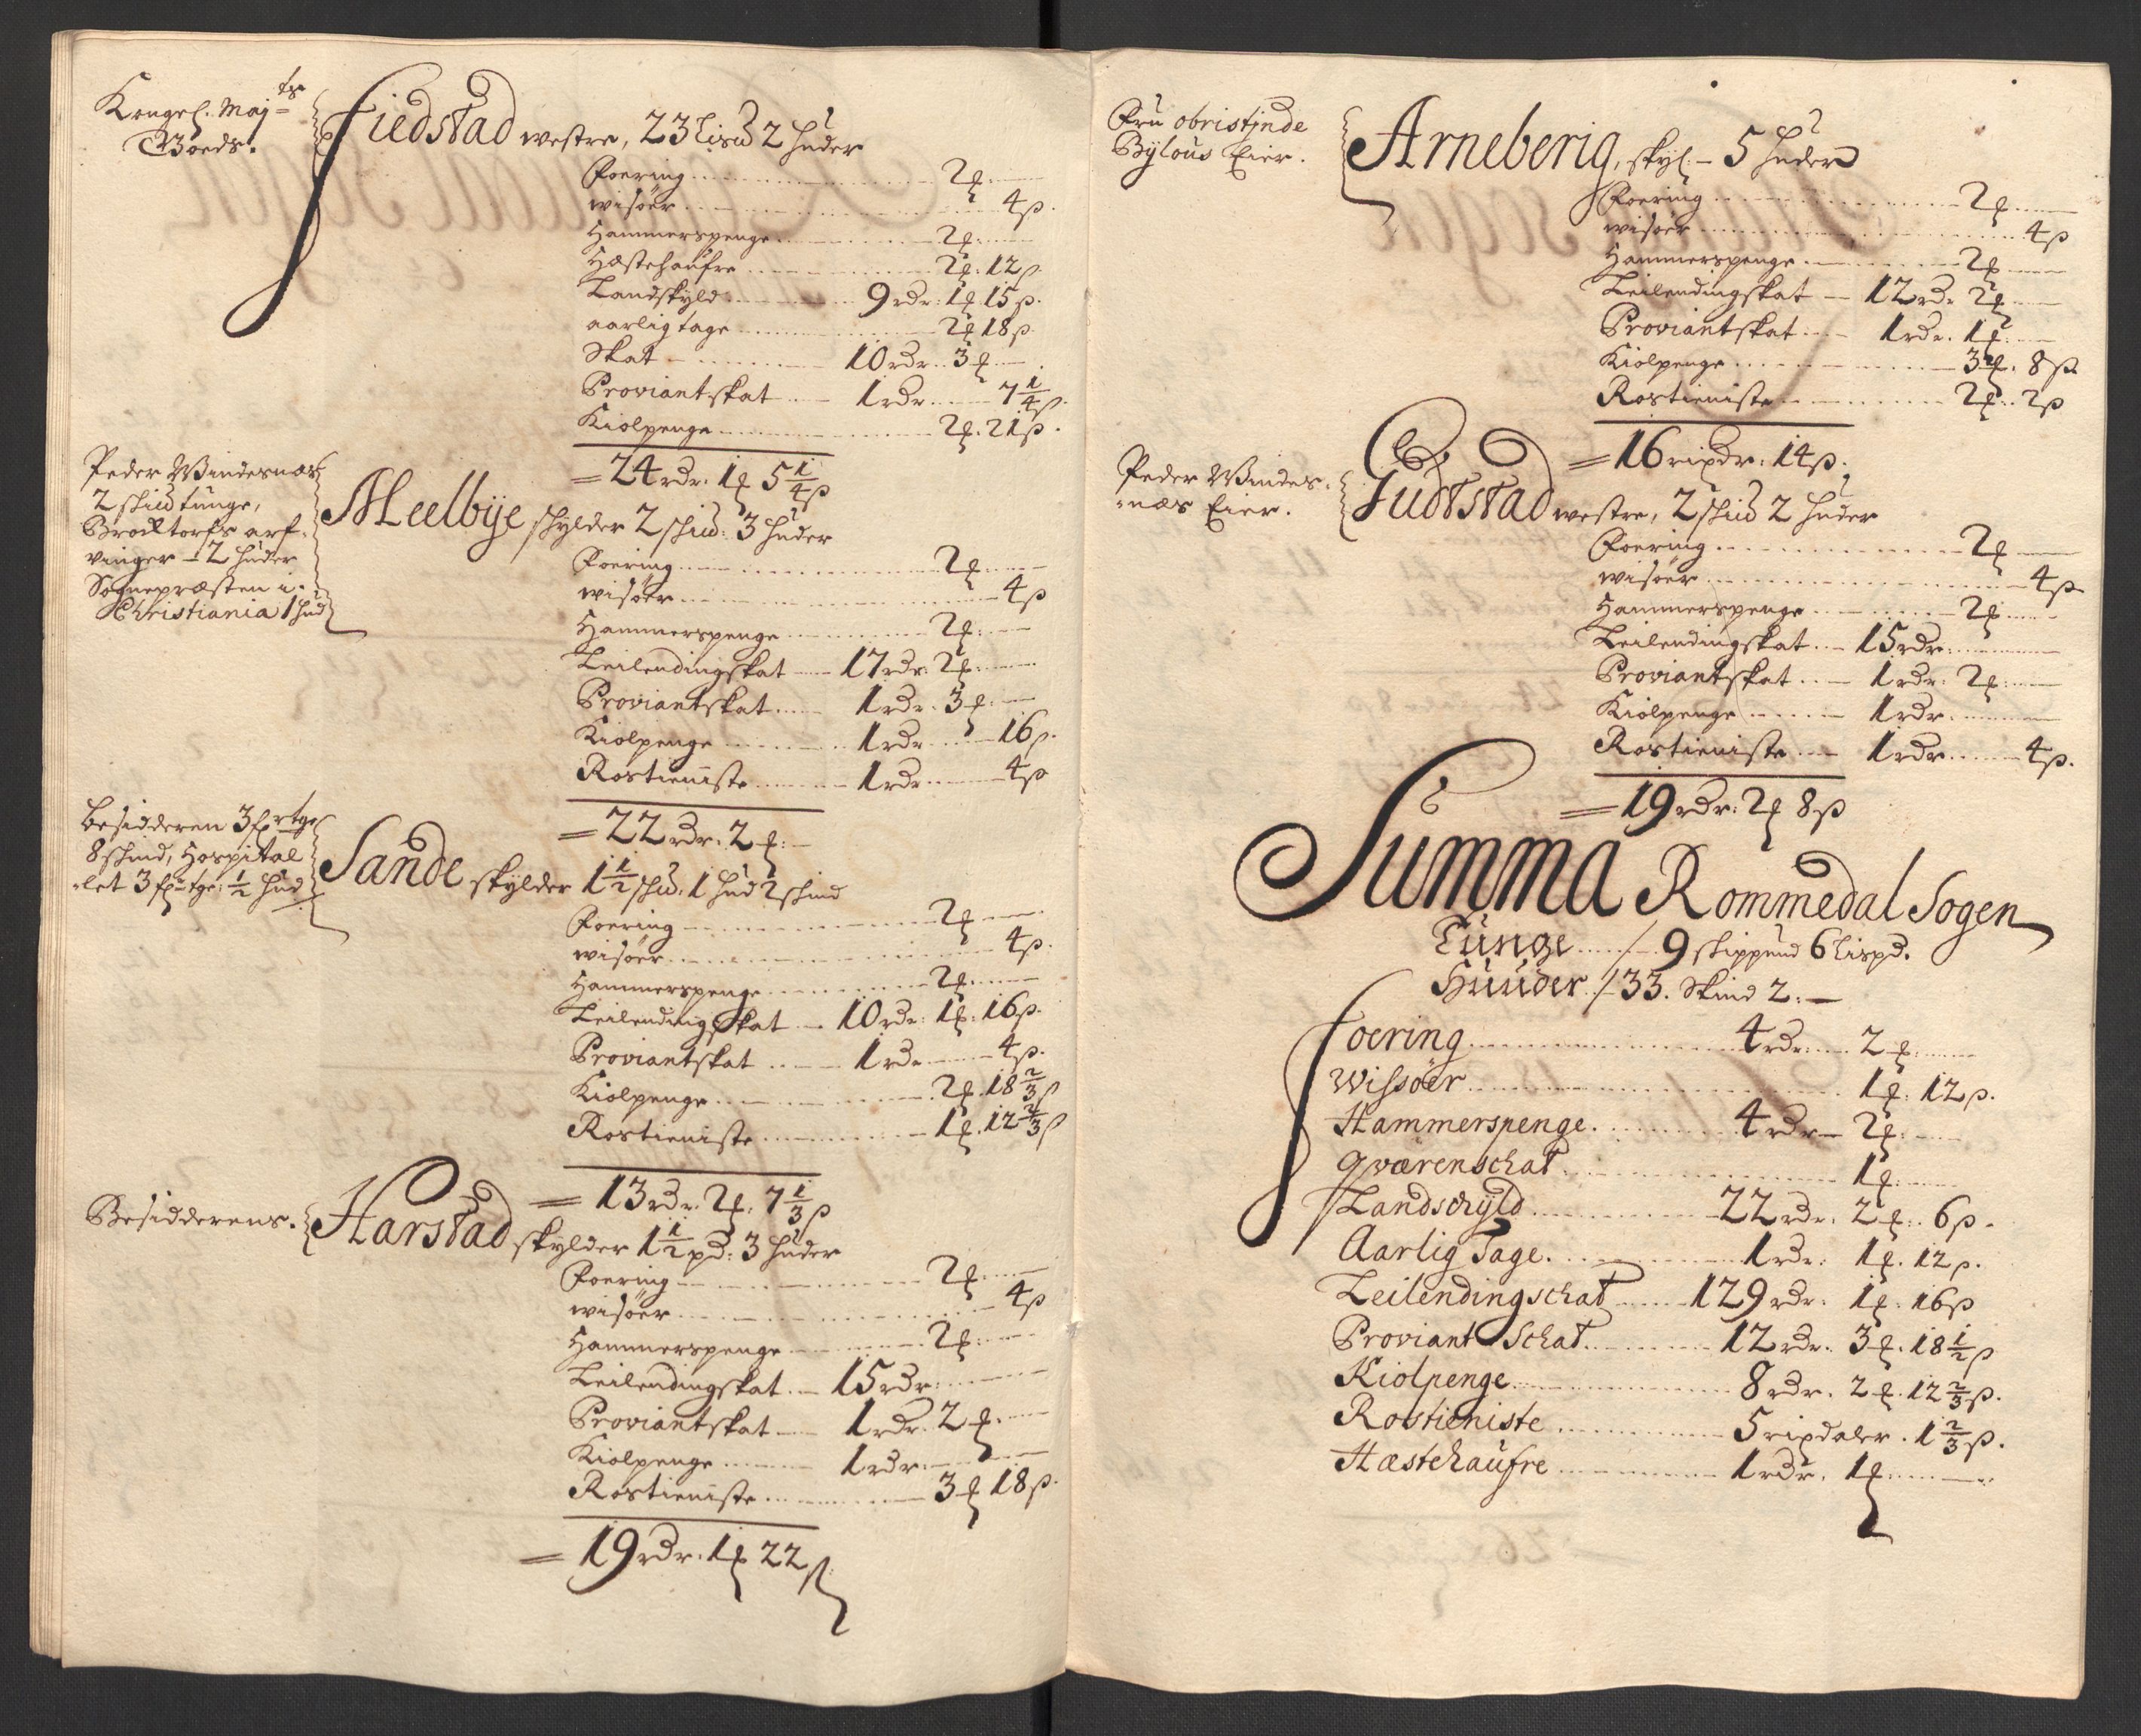 Kongel. Maj=ts
Goeds.
Fiedstad westre, 23 Lis℔ 2 huder
Foering 2 ƒ
wisöer 4 ß
Hammerspenge 2 ƒ
Hæstehaufre 2 ƒ. 12 ß.
Landskyld 9 rdr. 1 ƒ 15 ß.
aarlig tage 2 ƒ 18 ß
Skat 10 rdr. 3 ƒ
Proviantskat 1 rdr. 7 1/4 ß.
Kiolpenge 2 ƒ. 21 ß.
= 24 rdr. 1 ƒ 5 1/4 ß
Peder Windesnæs
2 skiud tunge,
Brocktorfs arf-
vinger - 2 huder
Sognepræsten i
Christiania 1 hud
Meelbÿe skylder 2 skiud. 3 huder
Foering 2 ƒ
wisöer 4 ß
Hammerspenge 2 ƒ
Leilendingskat 17 rdr. 2 ƒ
Proviantskat 1 rdr. 3 ƒ
Kiolpenge 1 rdr. 16 ß.
Rostieniste 1 rdr. 4 ß
= 22 rdr. 2 ƒ.
Besidderen 3 fr tge
8 skind, Hospital
-let 3 fr tge: 1/2 hud
Sande skylder 1 1/2 skud. 1 hud 2 skind
Foering 2 ƒ
wisöer 4 ß.
Hammerspenge 2 ƒ
Leilendingskat 10 rdr. 1 ƒ. 16 ß.
Proviantskat 1 rdr. 4 ß.
Kiolpenge 2 ƒ. 18 2/3 ß
Rostieniste 1 ƒ. 12 2/3 ß
= 13 rdr. 2 ƒ. 7 1/3 ß
Besidderens.
Harstad skylder 1 1/2 pd: 3 huder
Foering 2 ƒ
wisöer 4 ß
Hammerspenge 2 ƒ
Leilendingskat 15 rdr.
Proviantskat 1 rdr. 2 ƒ.
Kiolpenge 1 rdr.
Rostieniste 3 ƒ 18 ß.
= 19 rdr. 1 ƒ 22 ß
Fru obristjnde
Bÿlous Eier.
Arneberig, skyl. - 5 huder
Foering 2 ƒ
wisöer 4 ß
Hammerspenge 2 ƒ
Leilendingskat 12 rdr. 2 ƒ
Proviantskat 1 rdr. 1 ƒ.
Kiolpenge 3 ƒ. 8 ß.
Rostieniste 2 ƒ. 2 ß
= 16 ripdr. 14 ß.
Peder Windes-
-næs Eier.
Judtstad westre, 2 skiud 2 huder
Foering 2 ƒ
wisöer 4 ß.
Hammerspenge 2 ƒ
Leilendingskat 15 rdr.
Proviantskat 1 rdr. 2 ƒ
Kiolpenge 1 rdr.
Rostieniste 1 rdr. 4 ß.
= 19 rdr. 2 ƒ 8 ß
Summa Rommedal Sogen
Tunge 9 skippund 6 Lispd.
Huuder 33. Skind 2.
Foering 4 rdr. 2 ƒ.
Wissöer 1 ƒ. 12 ß.
Hammerspenge. 4 rdr. 2 ƒ.
Qværenschat 1 ƒ.
Landschyld 22 rdr. 2 ƒ. 6 ß.
Aarlig Tage. 1 rdr. 1 ƒ. 12 ß.
Leilendingschat 129 rdr. 1 ƒ. 16 ß
Proviant Schat 12 rdr. 3 ƒ. 18 1/2 ß
Kiolpenge 8 rdr. 2 ƒ. 12 2/3 ß.
Rostieniste 5 ripdaler. 1 2/3 ß.
Hæstehaufre 1 rdr. 1 ƒ